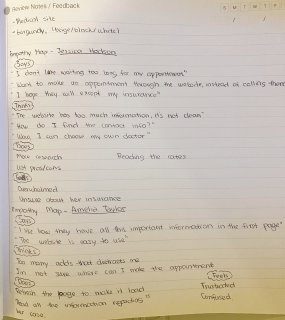 Review Notes / Feedback
S M T W T F S
- Medical site
- burgundy, (beige/black/white)
Empathy Map - Jessica
Says
"I don't like waiting too long for my appointment"
"Want to make an appointment through the website, instead of calling them
"I hope they will except my insurance"
Thinks
"The website has too much information, it's not clean"
"How do I find the contact info?"
"Wow, I can choose my own doctor"
Does
More research
Reading the rates
List pros/cons
Feels
Overwhelmed
Unsure about her insurance
Empathy Map - Amelia Taylor
Says
"I like how they have all this important information in the first page"
"The website is easy to use"
Thinks
Too many adds that distracts me
I'm not sure where can I make the appointment
Does
Feels
Refresh the page to make it load
Frustrated
Read all the information regarding is
Confused
her case